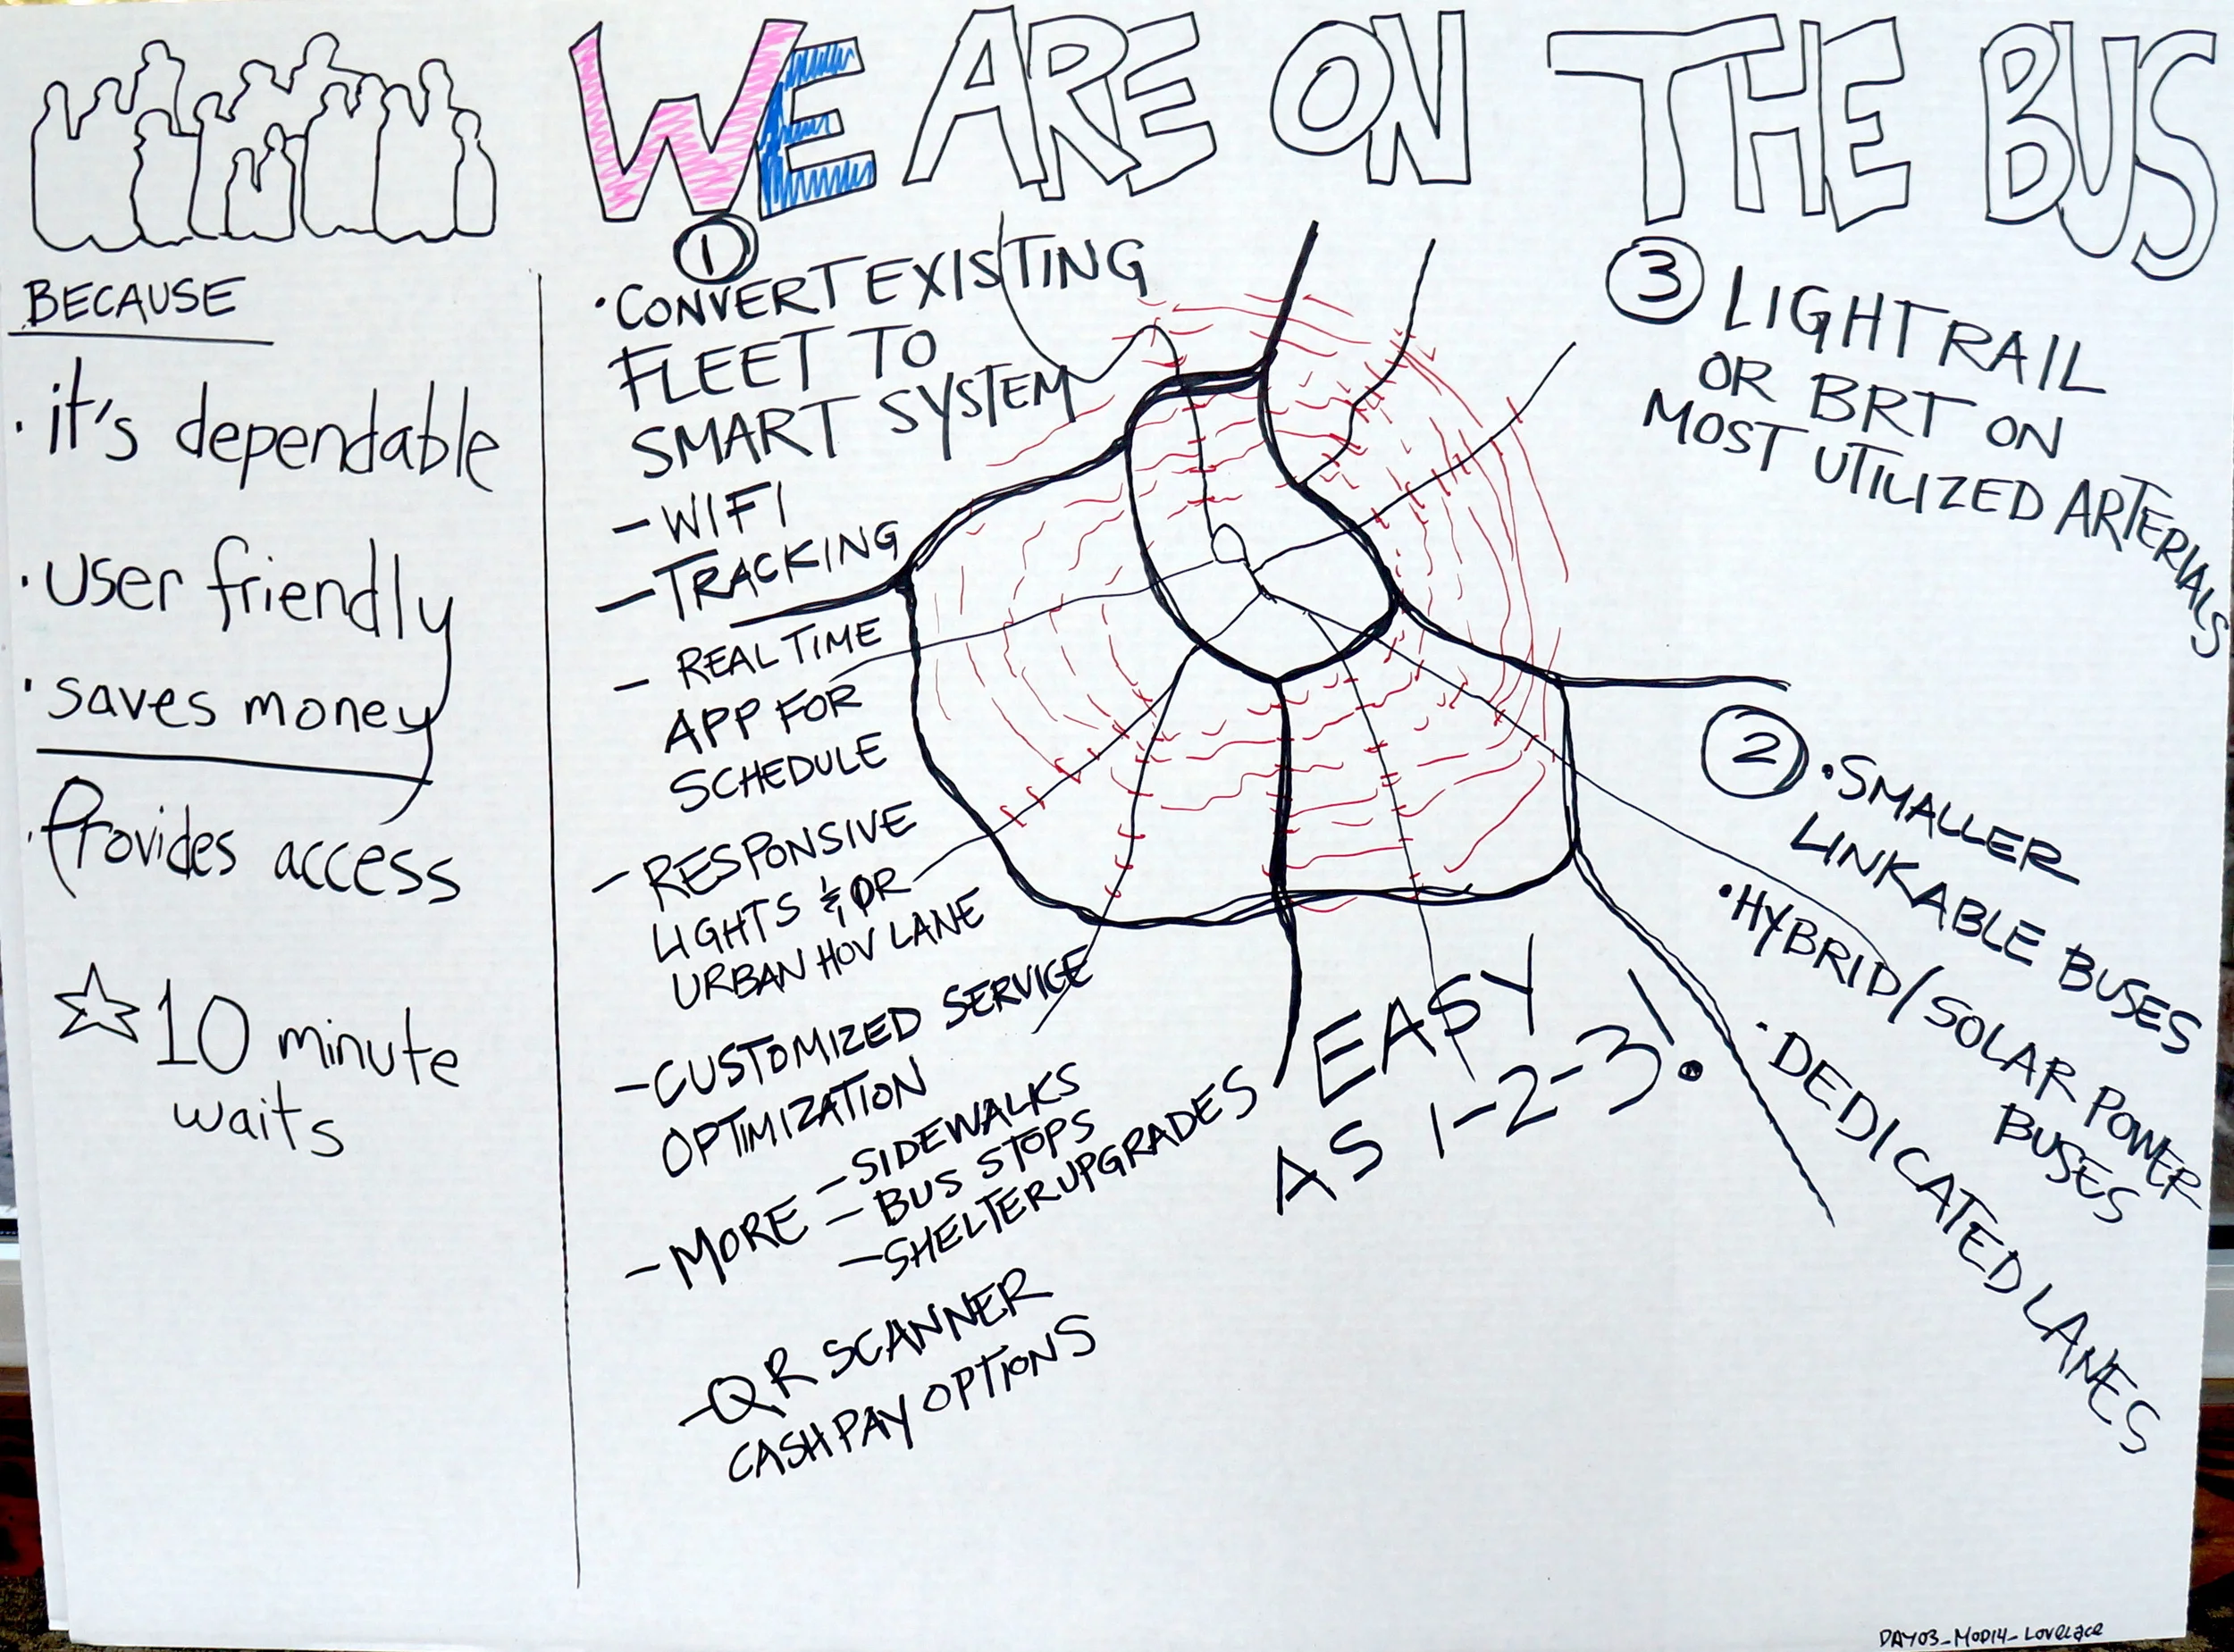 WE ARE ON THE BUS
BECAUSE
· it's dependable
· user friendly
· saves money
· Provides access
☆ 10 minute
waits
①
· CONVERT EXISTING
FLEET TO
SMART SYSTEM
- WIFI
- TRACKING
- REAL TIME
APP FOR
SCHEDULE
- RESPONSIVE
LIGHTS &/OR
URBAN HOV LANE
- CUSTOMIZED SERVICE
OPTIMIZATION
- MORE - SIDEWALKS
- BUS STOPS
- SHELTER UPGRADES
- QR SCANNER
CASH PAY OPTIONS
EASY
AS 1-2-3!
③ LIGHT RAIL
OR BRT ON
MOST UTILIZED ARTERIALS
② · SMALLER
LINKABLE BUSES
· HYBRID/SOLAR POWER
BUSES
· DEDICATED LANES
DAY03_MOD14_LOVELACE